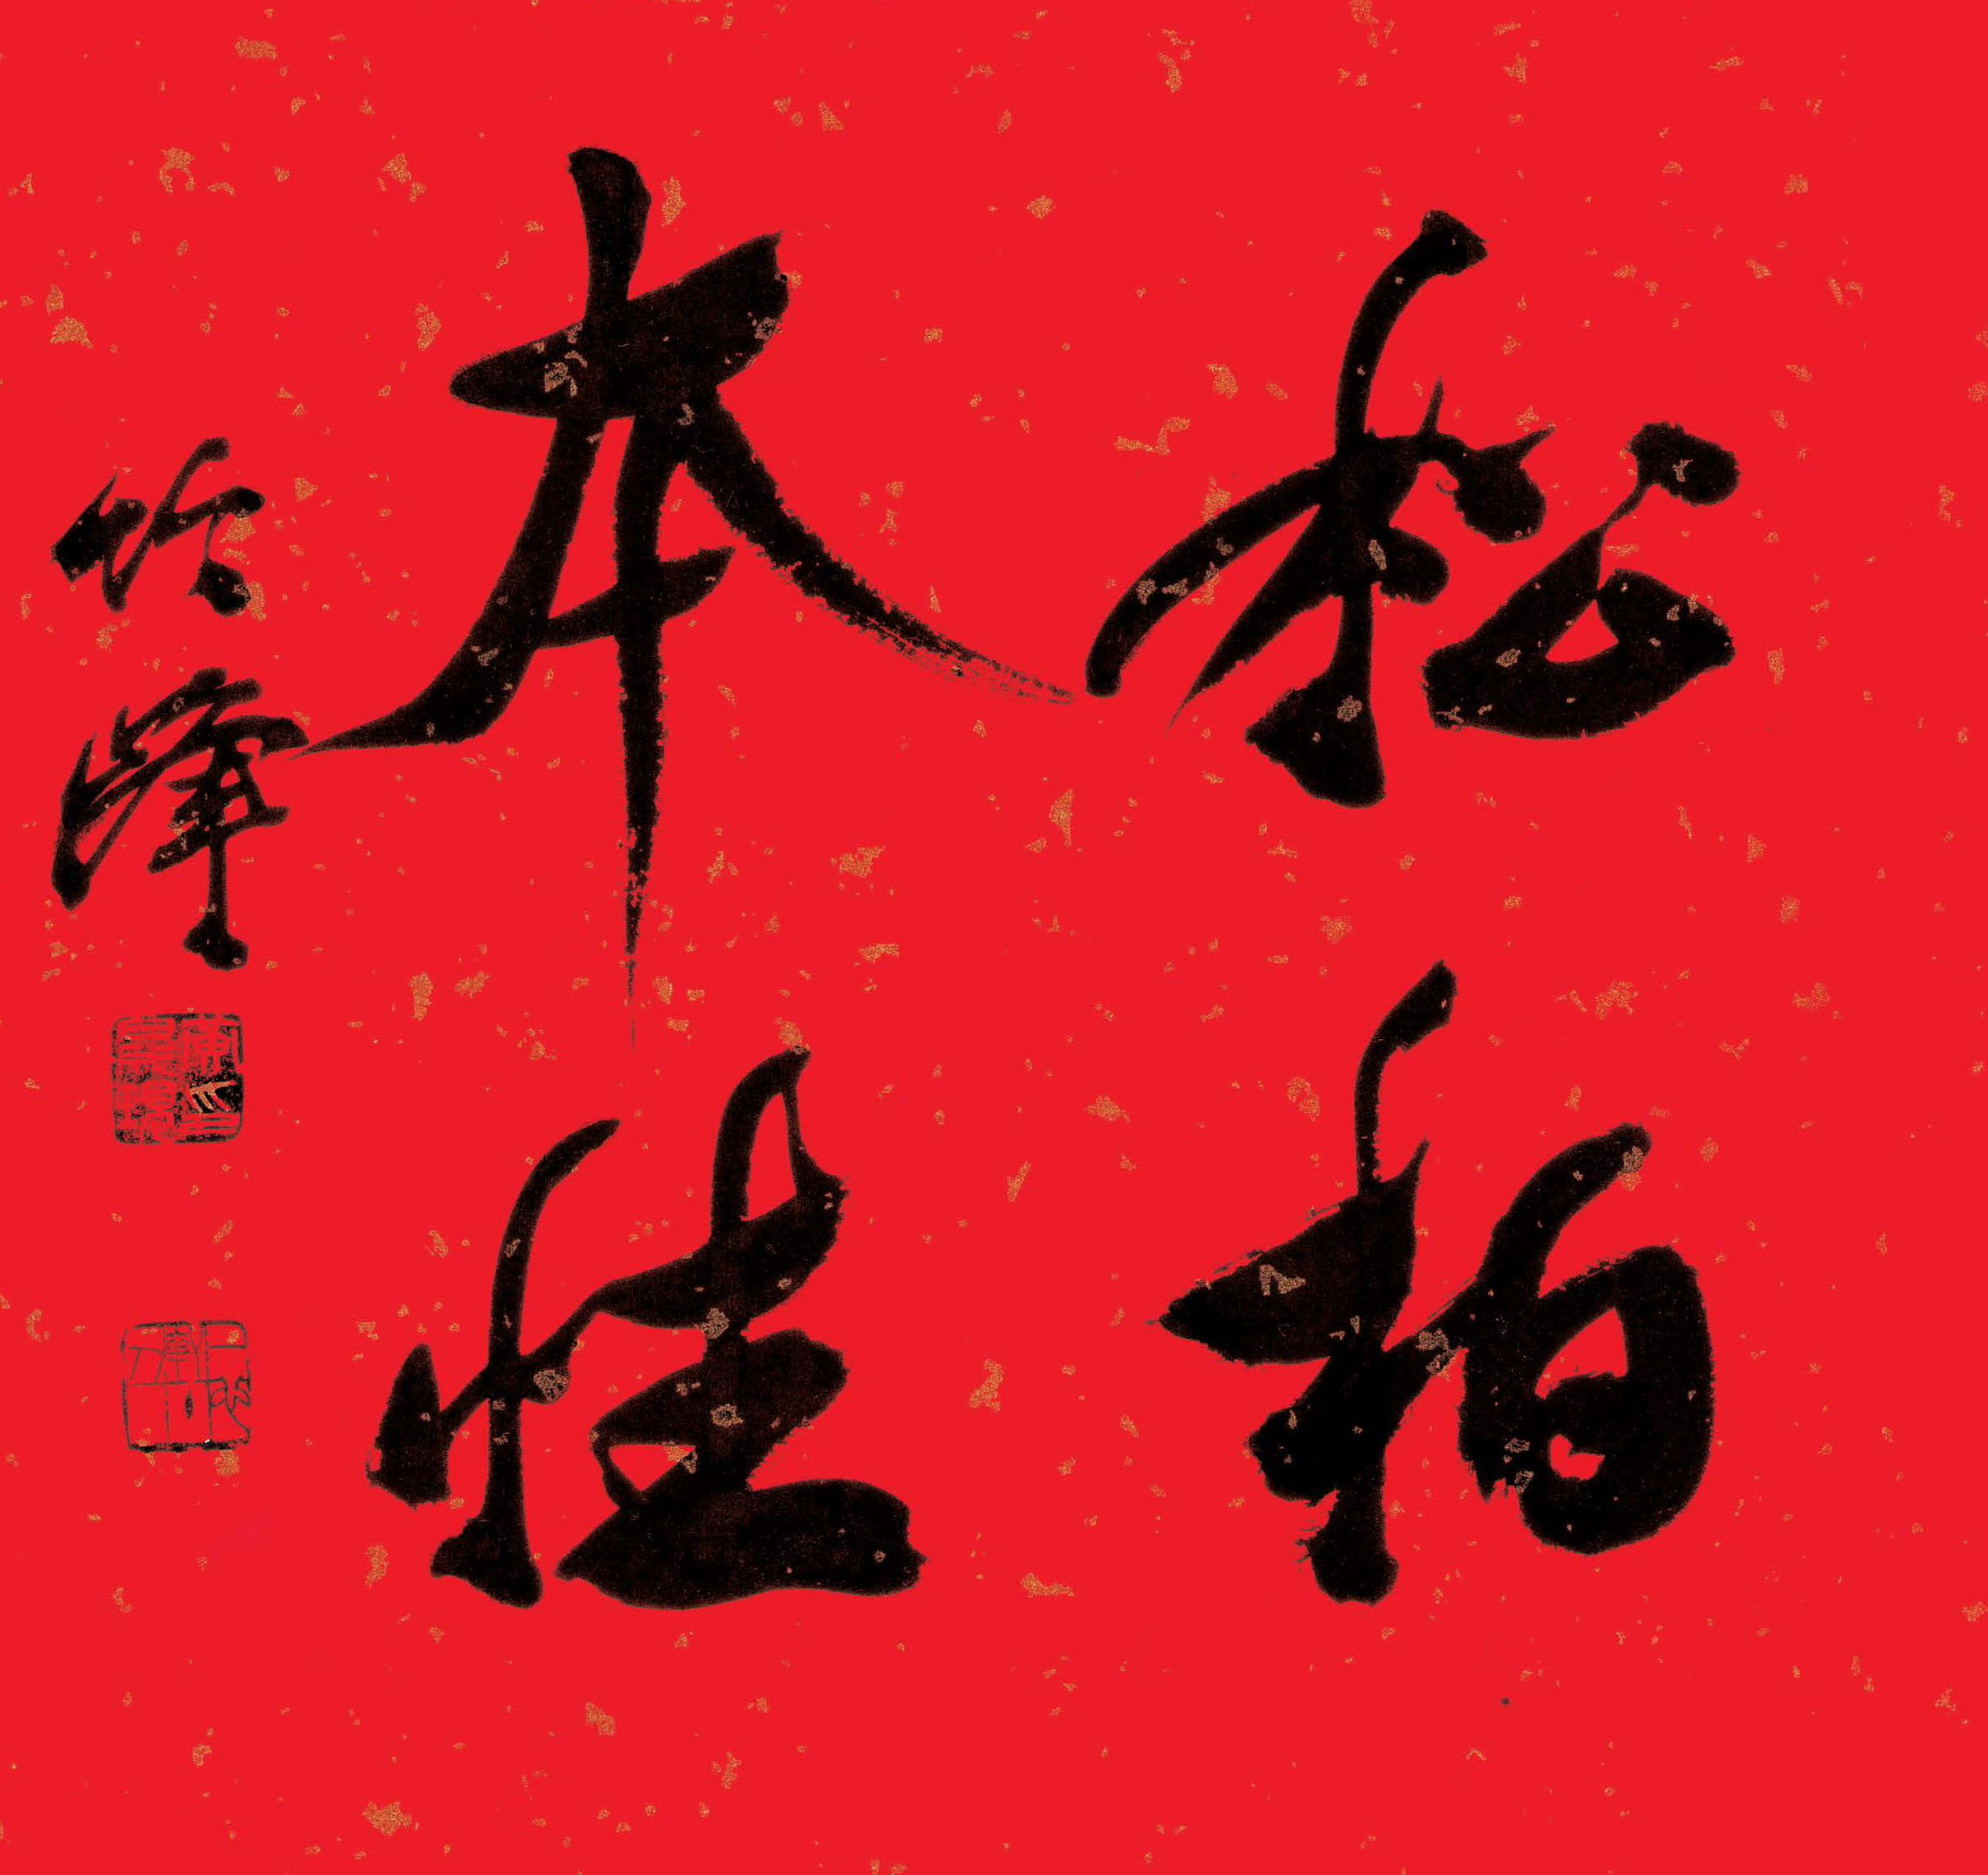 松柏
本性
竹峰